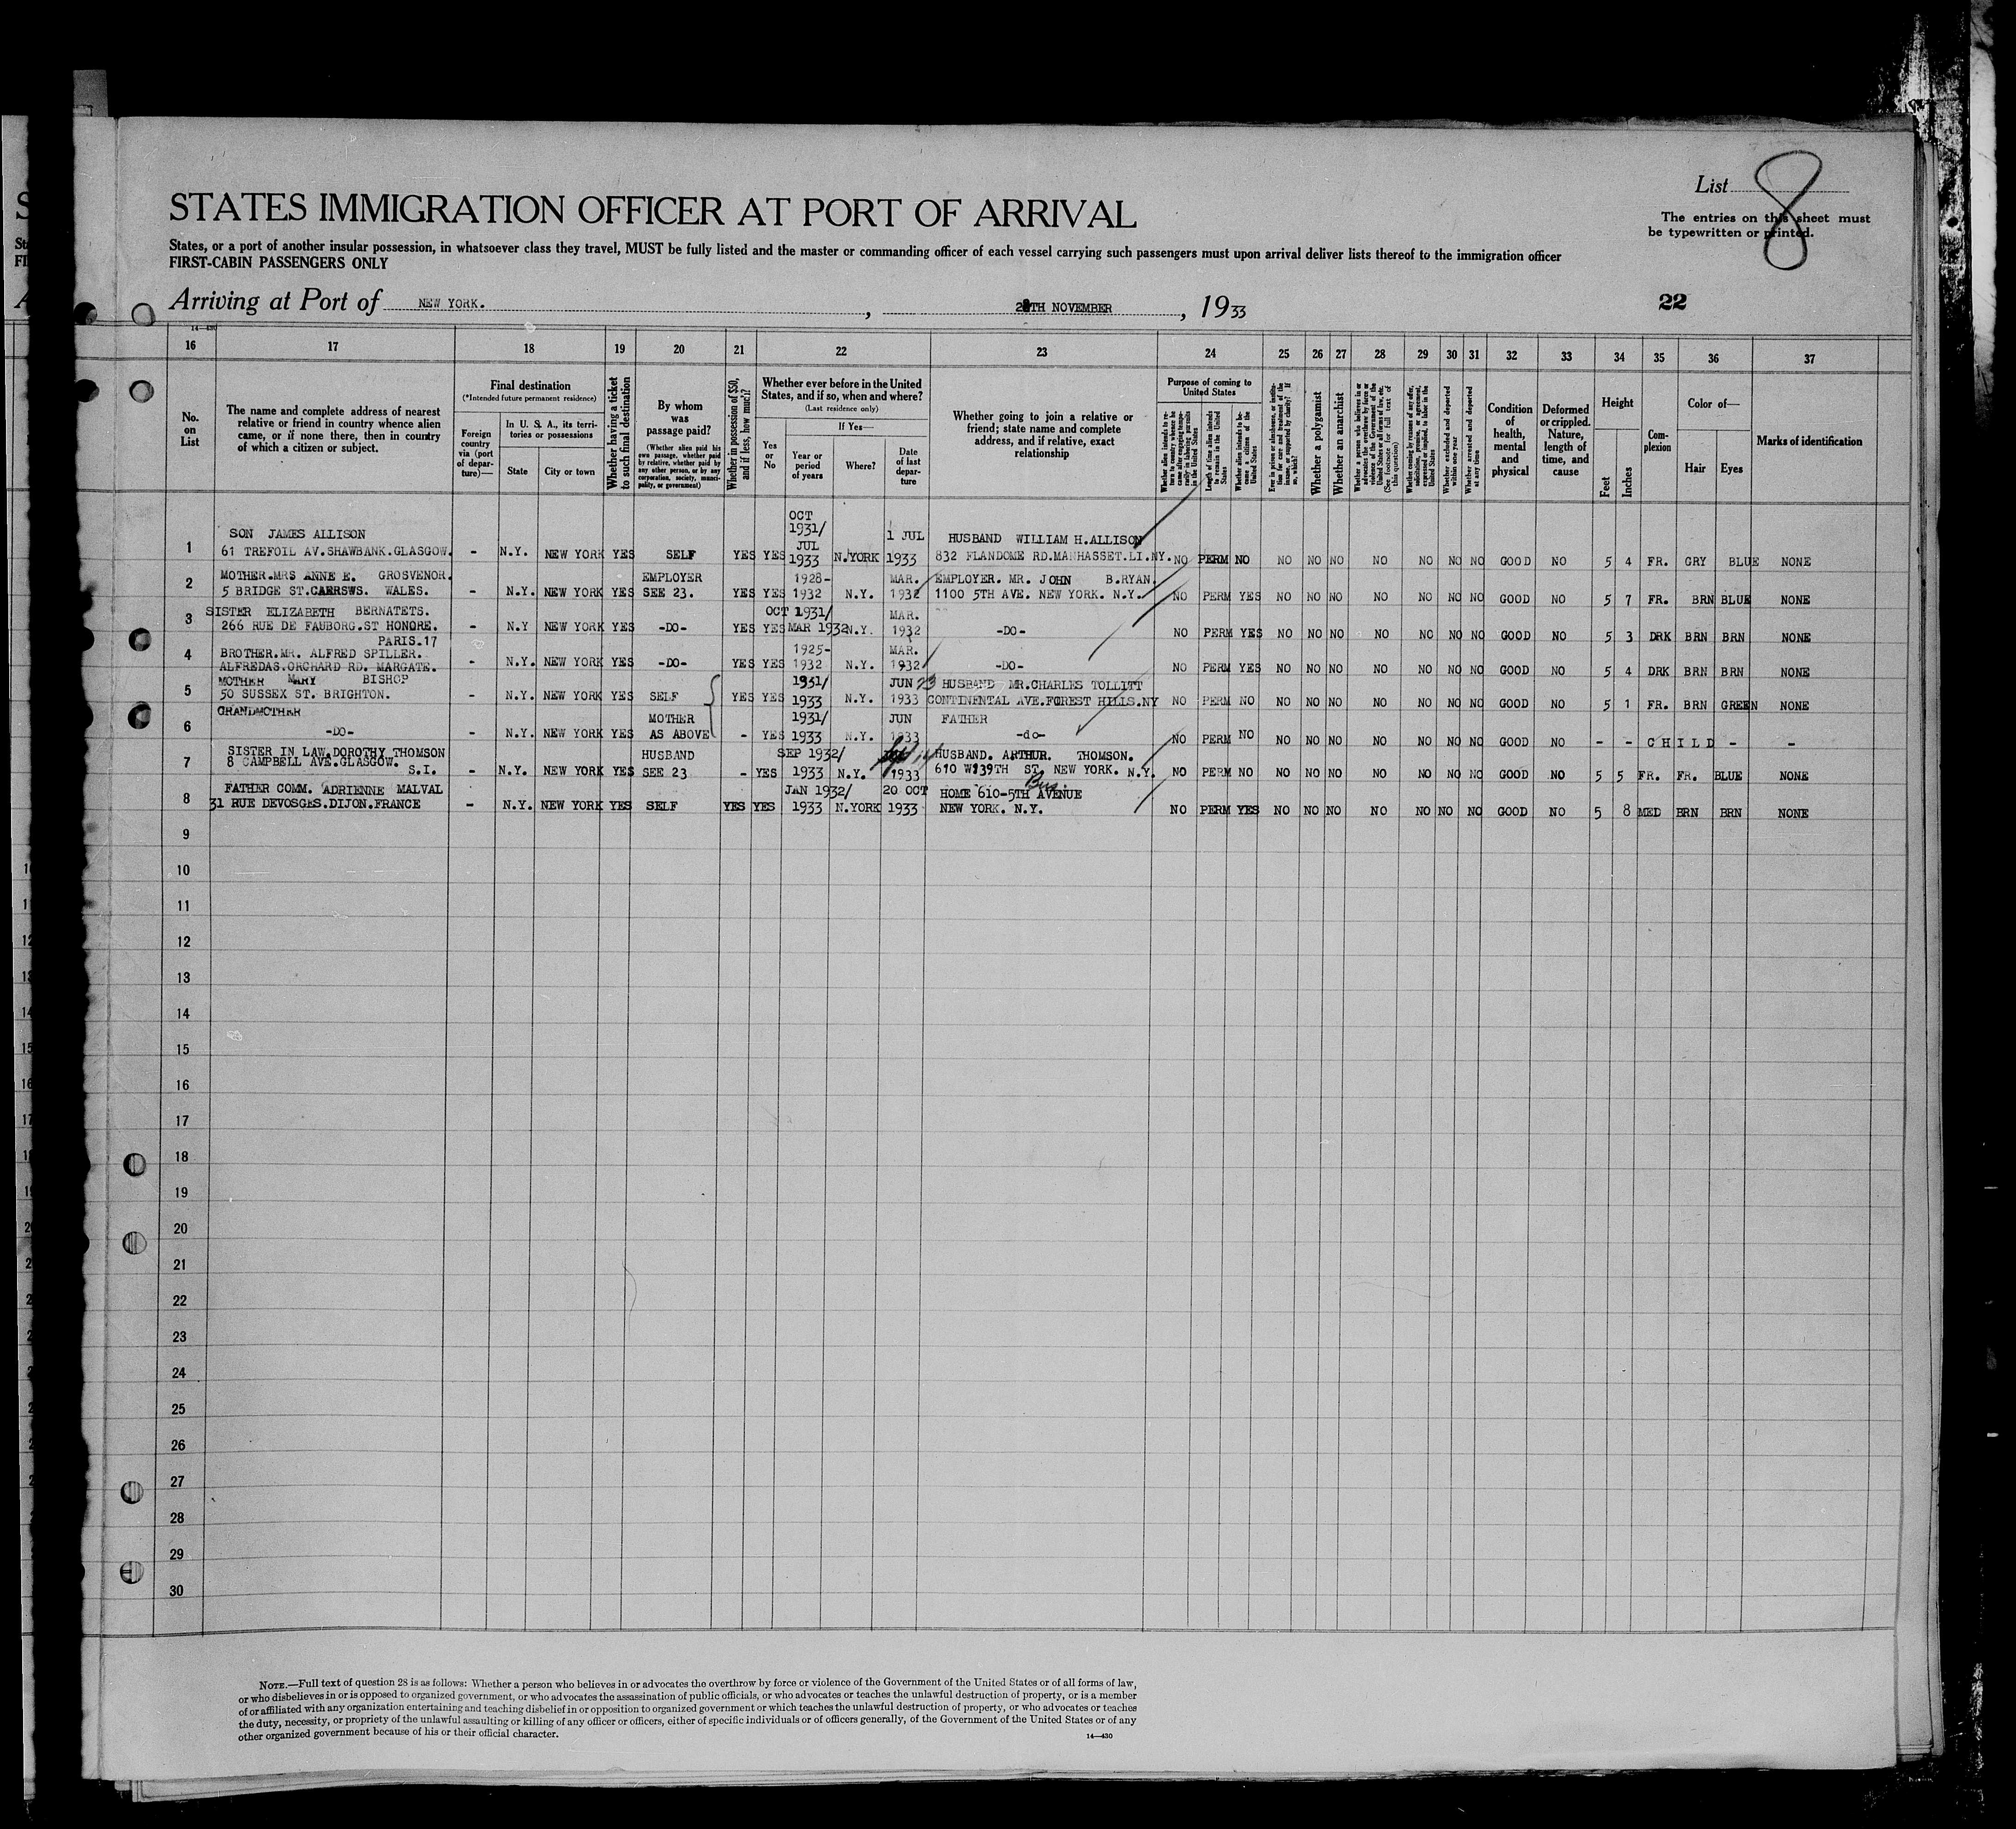 List 8
The entries on this sheet must
be typewritten or printed.
STATES IMMIGRATION OFFICER AT PORT OF ARRIVAL
States, or a port of another insular possession, in whatsoever class they travel, MUST be fully listed and the master or commanding officer of each vessel carrying such passengers must upon arrival deliver lists thereof to the immigration officer
FIRST-CABIN PASSENGERS ONLY
Arriving at Port of NEW YORK. , TH NOVEMBER , 1933 22
14—430
16 17 18 19 20 21 22 23 24 25 26 27 28 29 30 31 32 33 34 35 36 37
No. on List
The name and complete address of nearest relative or friend in country whence alien came, or if none there, then in country of which a citizen or subject.
Final destination
(*Intended future permanent residence)
Foreign country via (port of departure)—
In U. S. A., its territories or possessions
State
City or town
Whether having a ticket to such final destination
By whom was passage paid?
(Whether alien paid his own passage, whether paid by relative, whether paid by any other person, or by any corporation, society, municipality, or government)
Whether in possession of $50, and if less, how much?
Whether ever before in the United States, and if so, when and where?
(Last residence only)
Yes or No
If Yes—
Year or period of years
Where?
Date of last departure
Whether going to join a relative or friend; state name and complete address, and if relative, exact relationship
Purpose of coming to United States
Whether alien intends to return to country whence he came after engaging temporarily in laboring pursuits in the United States
Length of time alien intends to remain in the United States
Whether alien intends to become a citizen of the United States
Ever in prison or almshouse, or institution for care and treatment of the insane, or supported by charity? If so, which?
Whether a polygamist
Whether an anarchist
Whether a person who believes in or advocates the overthrow by force or violence of the Government of the United States or all forms of law, etc. (See footnote for full text of this question)
Whether coming by reasons of any offer, solicitation, promise, or agreement, expressed or implied, to labor in the United States
Whether excluded and deported within one year
Whether arrested and deported at any time
Condition of health, mental and physical
Deformed or crippled. Nature, length of time, and cause
Height
Feet
Inches
Complexion
Color of—
Hair
Eyes
Marks of identification
1 SON JAMES ALLISON
61 TREFOIL AV.SHAWBANK.GLASGOW. - N.Y. NEW YORK YES SELF YES YES OCT 1931/ JUL 1933 N.YORK 1 JUL 1933 HUSBAND WILLIAM H.ALLISON
832 FLANDOME RD.MANHASSET.LI.NY. NO PERM NO NO NO NO NO NO NO NO GOOD NO 5 4 FR. GRY BLUE NONE
2 MOTHER.MRS ANNE E. GROSVENOR.
5 BRIDGE ST.CAERSWS. WALES. - N.Y. NEW YORK YES EMPLOYER SEE 23. YES YES 1928- 1932 N.Y. MAR. 1932 EMPLOYER. MR. JOHN B.RYAN.
1100 5TH AVE. NEW YORK. N.Y. NO PERM YES NO NO NO NO NO NO NO GOOD NO 5 7 FR. BRN BLUE NONE
3 SISTER ELIZABETH BERNATETS.
266 RUE DE FAUBORG.ST HONORE.
PARIS.17 - N.Y NEW YORK YES -DO- YES YES OCT 1931/ MAR 1932 N.Y. MAR. 1932 -DO- NO PERM YES NO NO NO NO NO NO NO GOOD NO 5 3 DRK BRN BRN NONE
4 BROTHER.MR. ALFRED SPILLER.
ALFREDAS.ORCHARD RD. MARGATE. - N.Y. NEW YORK YES -DO- YES YES 1925- 1932 N.Y. MAR. 1932 -DO- NO PERM YES NO NO NO NO NO NO NO GOOD NO 5 4 DRK BRN BRN NONE
5 MOTHER MARY BISHOP
50 SUSSEX ST. BRIGHTON. - N.Y. NEW YORK YES SELF YES YES 1931/ 1933 N.Y. JUN 23 1933 HUSBAND MR.CHARLES TOLLITT
CONTINENTAL AVE.FOREST HILLS.NY NO PERM NO NO NO NO NO NO NO NO GOOD NO 5 1 FR. BRN GREEN NONE
6 GRANDMOTHER
-DO- - N.Y. NEW YORK YES MOTHER AS ABOVE - YES 1931/ 1933 N.Y. JUN 1933 FATHER
-do- NO PERM NO NO NO NO NO NO NO NO GOOD NO - - CHILD - -
7 SISTER IN LAW.DOROTHY THOMSON
8 CAMPBELL AVE.GLASGOW.
S.I. - N.Y. NEW YORK YES HUSBAND SEE 23 - YES SEP 1932/ 1933 N.Y. 1933 HUSBAND. ARTHUR. THOMSON.
610 W139TH ST. NEW YORK. N.Y. NO PERM NO NO NO NO NO NO NO NO GOOD NO 5 5 FR. FR. BLUE NONE
8 FATHER COMM. ADRIENNE MALVAL
31 RUE DEVOSGES.DIJON.FRANCE - N.Y. NEW YORK YES SELF YES YES JAN 1932/ 1933 N.YORK 20 OCT 1933 Bus. HOME 610-5TH AVENUE
NEW YORK. N.Y. NO PERM YES NO NO NO NO NO NO NO GOOD NO 5 8 MED BRN BRN NONE
9
10
11
12
13
14
15
16
17
18
19
20
21
22
23
24
25
26
27
28
29
30
NOTE.—Full text of question 28 is as follows: Whether a person who believes in or advocates the overthrow by force or violence of the Government of the United States or of all forms of law,
or who disbelieves in or is opposed to organized government, or who advocates the assassination of public officials, or who advocates or teaches the unlawful destruction of property, or is a member
of or affiliated with any organization entertaining and teaching disbelief in or opposition to organized government or which teaches the unlawful destruction of property, or who advocates or teaches
the duty, necessity, or propriety of the unlawful assaulting or killing of any officer or officers, either of specific individuals or of officers generally, of the Government of the United States or of any
other organized government because of his or their official character.
14—430